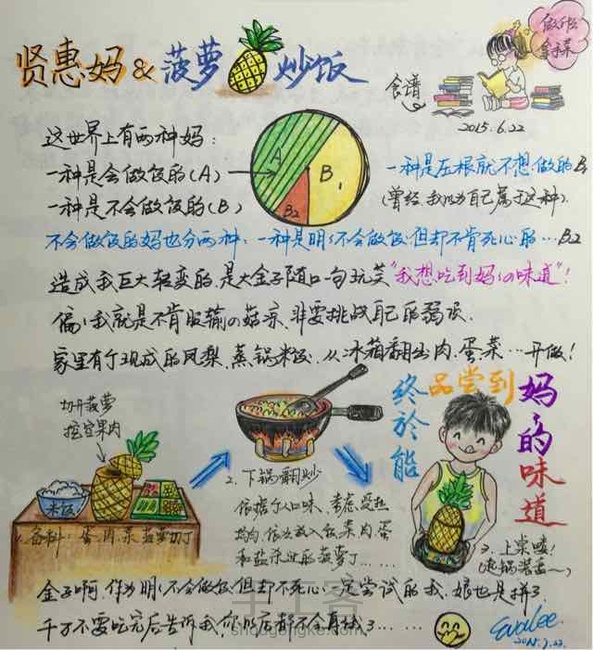 贤惠妈&菠萝炒饭
做个吃
拿手菜
食谱
2015.6.22
这世界上有两种妈:
一种是会做饭的(A)
一种是不会做饭的(B)
A
B
B1
B2
一种是压根就不想做的B1
(曾经我以为自己属于这种).
不会做饭的妈也分两种,一种是明明不会做饭但却不肯死心的…B2
造成我巨大转变的,是大金子随口一句玩笑"我想吃到妈妈的味道"!
偏偏我就是不肯服输の菇凉、非要挑战自己的弱项.
家里有个现成的凤梨、蒸锅米饭、从冰箱翻出肉、蛋、菜…开做!
切开菠萝
挖空果肉
米饭
1.备料:蛋、肉、菜、菠萝切丁
2.下锅翻炒
依据个人口味、考虑受热
均匀,依次放入饭菜肉蛋
和盐杀过的菠萝丁……
终於能
品尝到
妈妈的味道
3.上菜喽!
金子啊,作为明明不会做饭但却不死心一定尝试的我,娘也是拼了.
千万不要吃完后告诉我,你以后都不会再找了……
手工客
shougongke.com
EvaLee
2015.6.22.